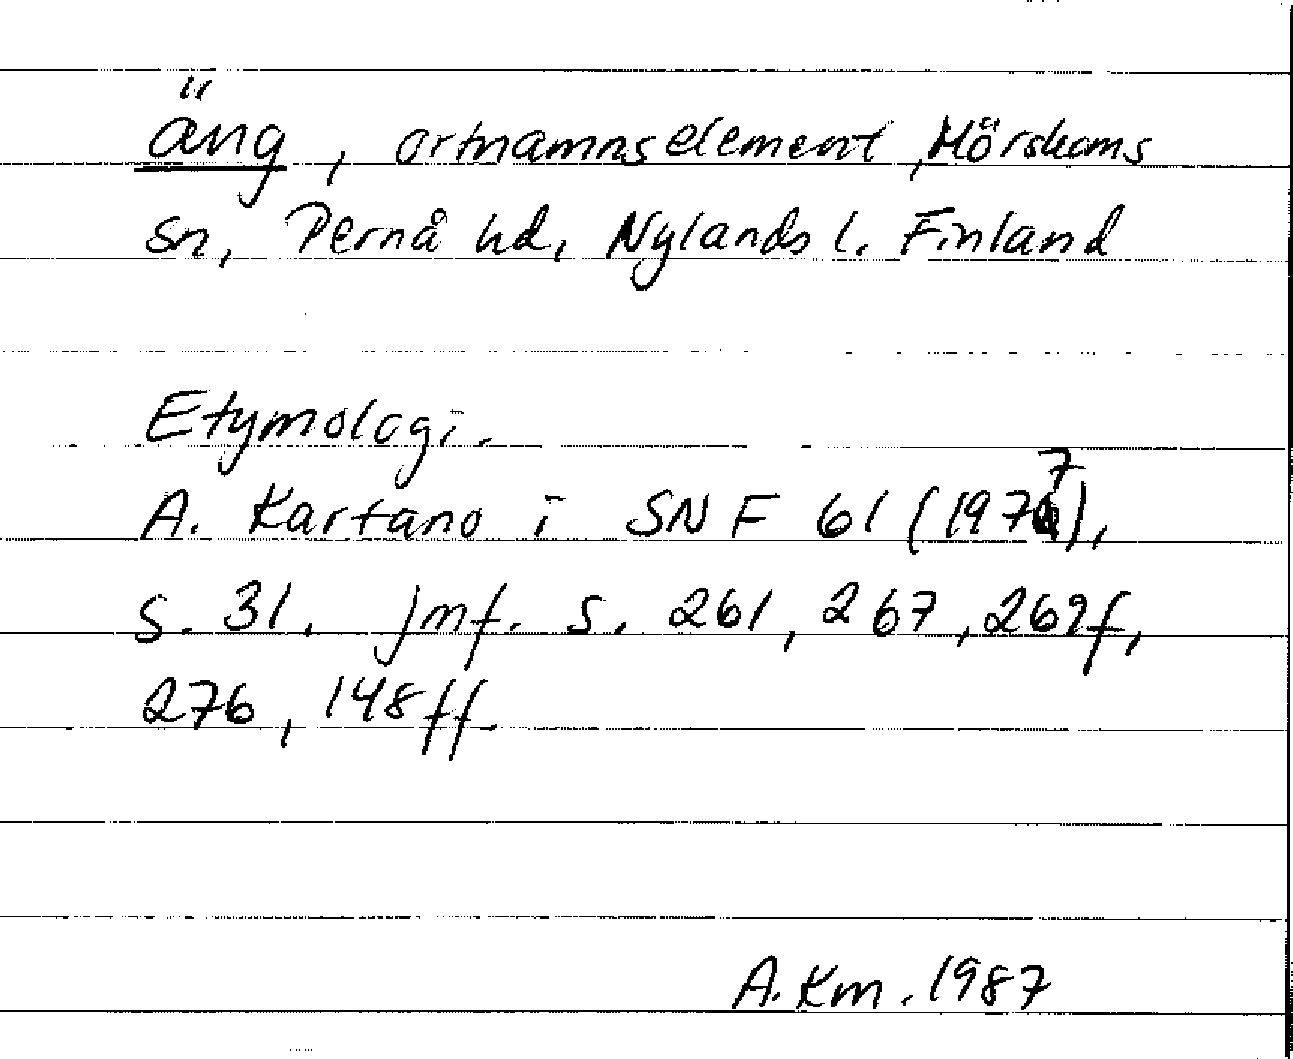 äng, ortnamnselement, Mörskoms
sn, Pernå hd, Nylands l. Finland
Etymologi.
A. Kartano i SNF 61 (1977),
s. 31. jmf. s. 261, 267, 269f,
276, 148ff.
A. Km. 1987